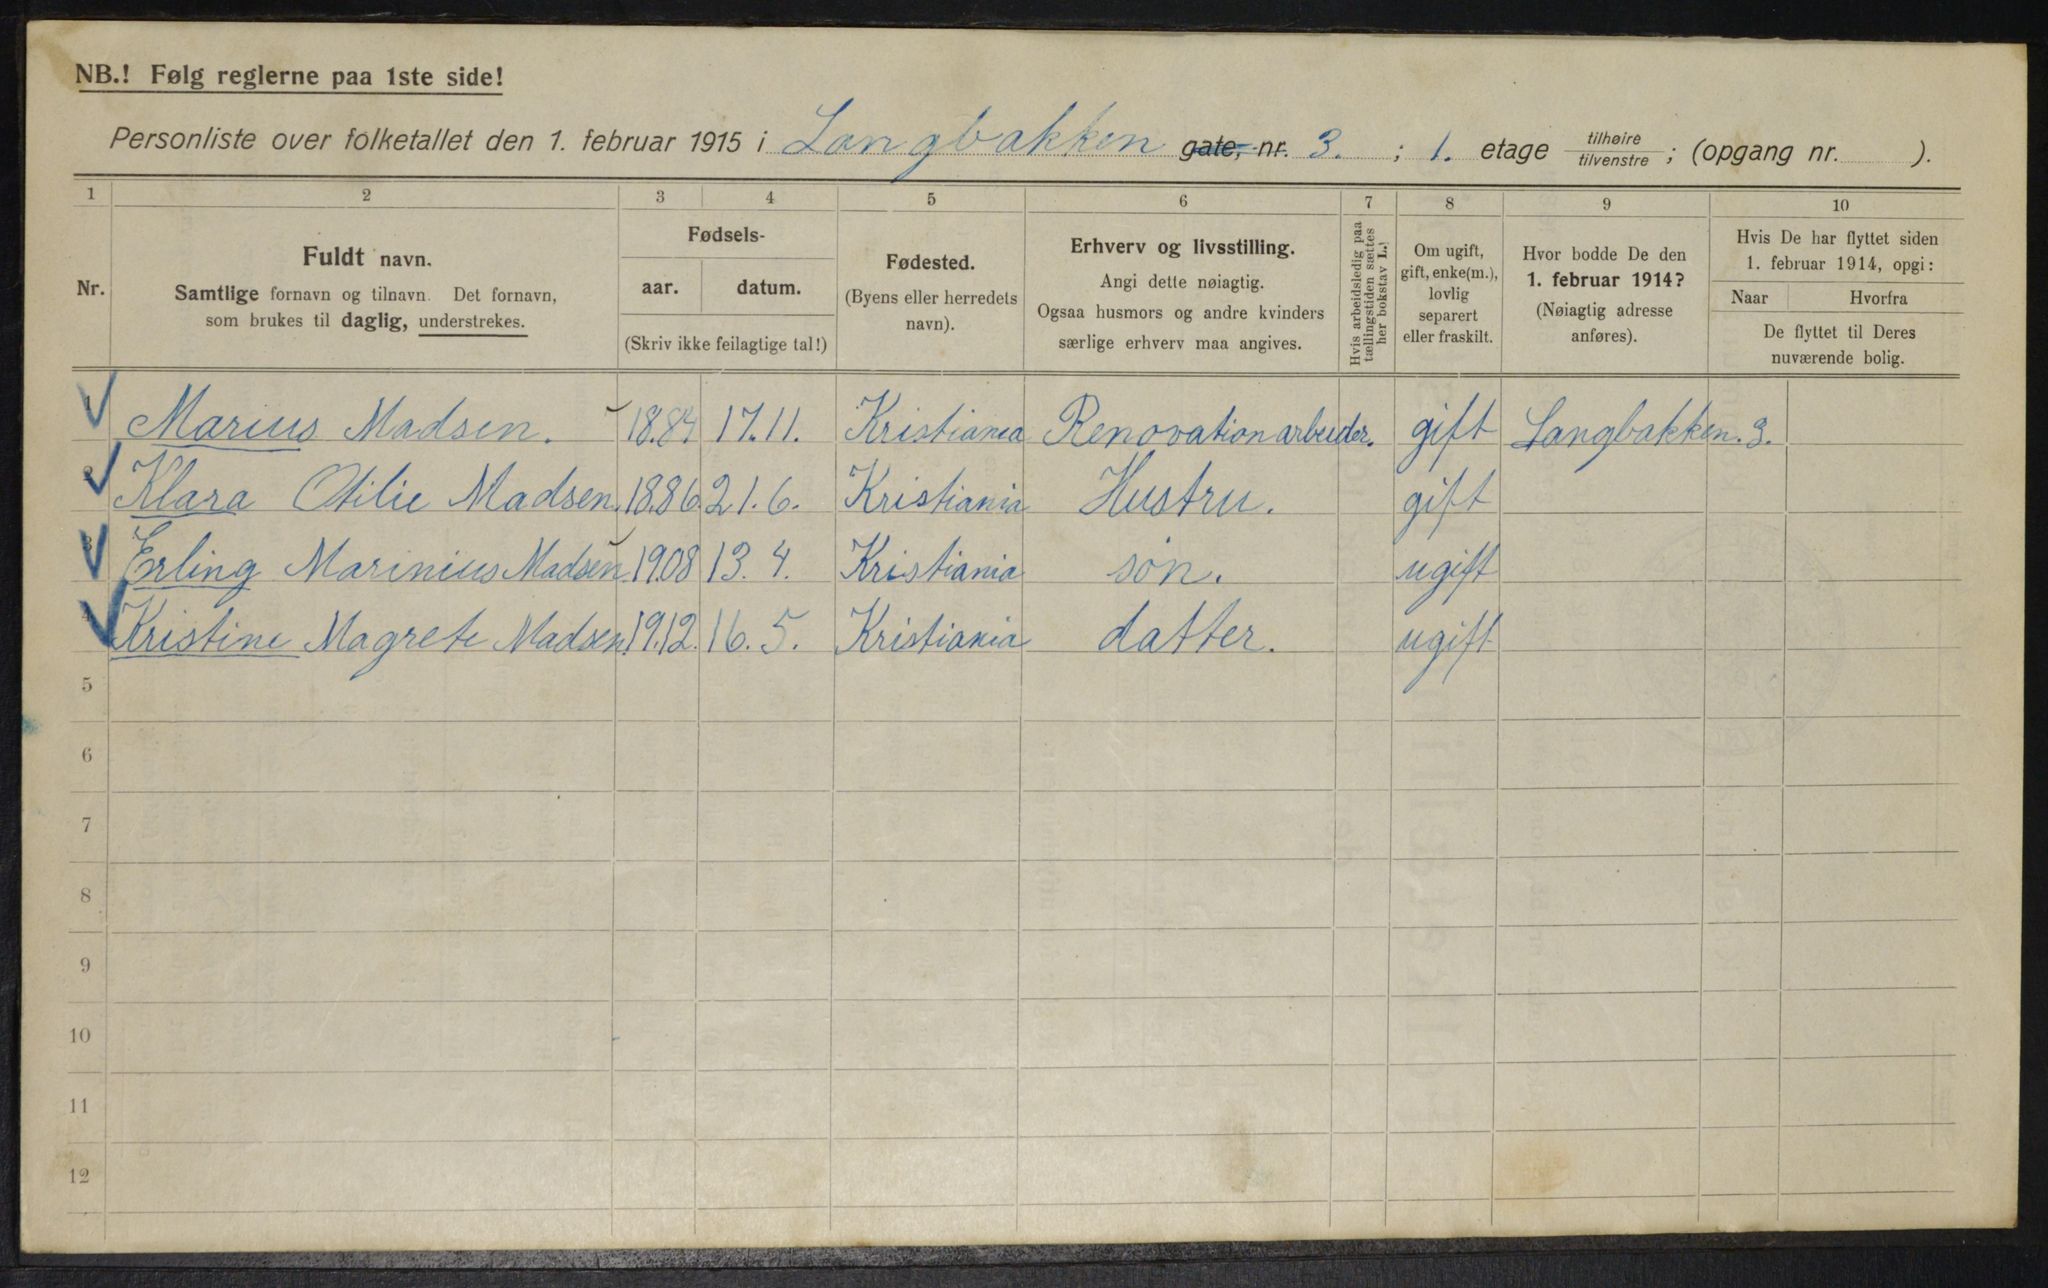 NB.! Følg reglerne paa 1ste side!
Personliste over folketallet den 1. februar 1915 i Langbakken gate, nr. 3. ; 1. etage tilhøire tilvenstre ; (opgang nr. ).
1 2 3 4 5 6 7 8 9 10
Nr.
Fuldt navn.
Samtlige fornavn og tilnavn. Det fornavn,
som brukes til daglig, understrekes.
Fødsels-
aar. datum.
(Skriv ikke feilagtige tal!)
Fødested.
(Byens eller herredets
navn).
Erhverv og livsstilling.
Angi dette nøiagtig.
Ogsaa husmors og andre kvinders
særlige erhverv maa angives.
Hvis arbeidsledig paa
tællingstiden sættes
her bokstav L.!
Om ugift,
gift, enke(m.),
lovlig
separert
eller fraskilt.
Hvor bodde De den
1. februar 1914?
(Nøiagtig adresse
anføres).
Hvis De har flyttet siden
1. februar 1914, opgi:
Naar Hvorfra
De flyttet til Deres
nuværende bolig.
1 Marius Madsen. 18.84 17.11. Kristiania Renovationarbeider. gift Langbakken. 3.
2 Klara Otilie Madsen. 18.86. 21.6. Kristiania Hustru. gift
3 Erling Marinius Madsen. 19.08 13. 4. Kristiania søn. ugift
4 Kristine Magrete Madsen. 19.12. 16. 5. Kristiania datter. ugift
5
6
7
8
9
10
11
12